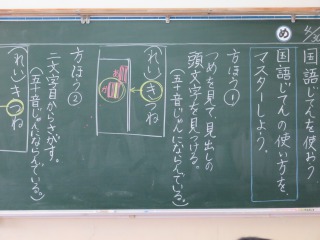 国語じてんを使おう
め
国語じてんの使い方を
マスターしよう。
方ほう①
つめを見て、見出しの
頭文字を見つける。
(五十音じゅんにならんでいる。)
(れい)きつね
方ほう②
二文字目からさがす。
(五十音じゅんにならんでいる。)
(れい)きつね